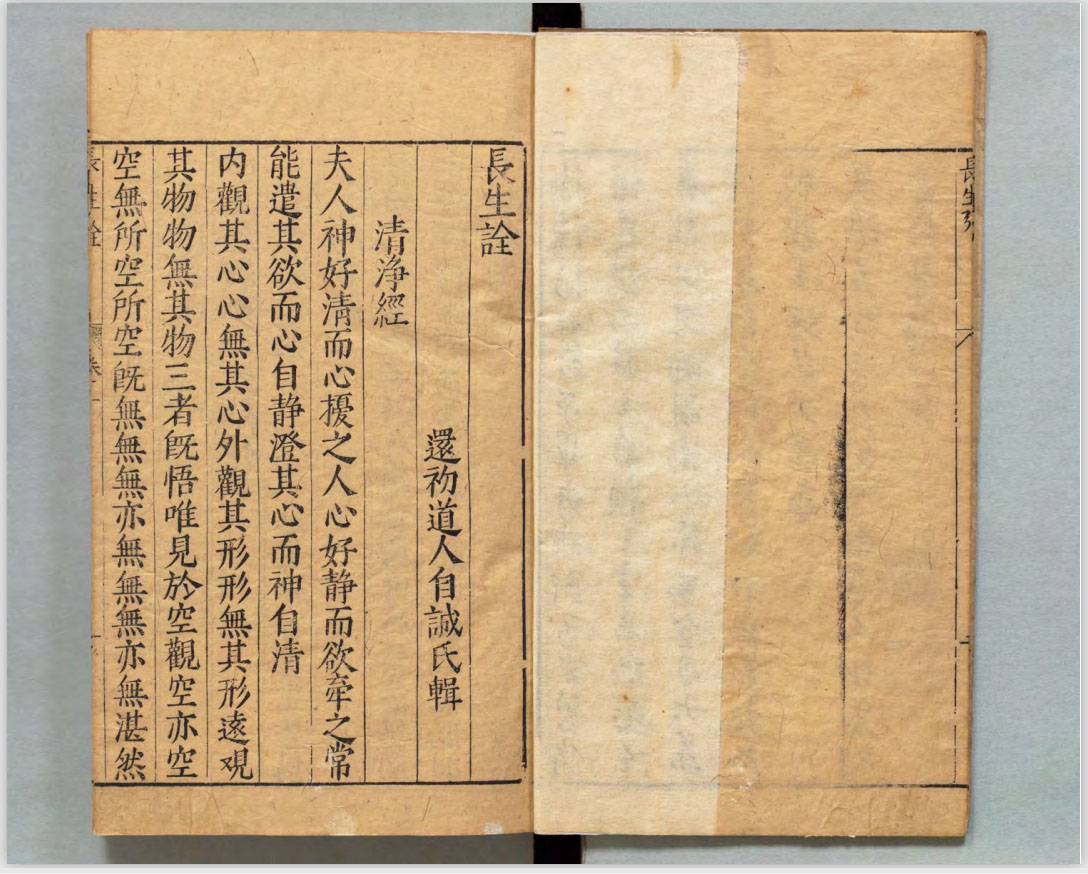 長生詮
還初道人自誠氏輯
清净經
夫人神好清而心擾之人心好静而欲牽之常
能遣其欲而心自静澄其心而神自清
内觀其心心無其心外觀其形形無其形遠观
其物物無其物三者旣悟唯見於空觀空亦空
空無所空所空旣無無無亦無無無亦無湛然
長生詮